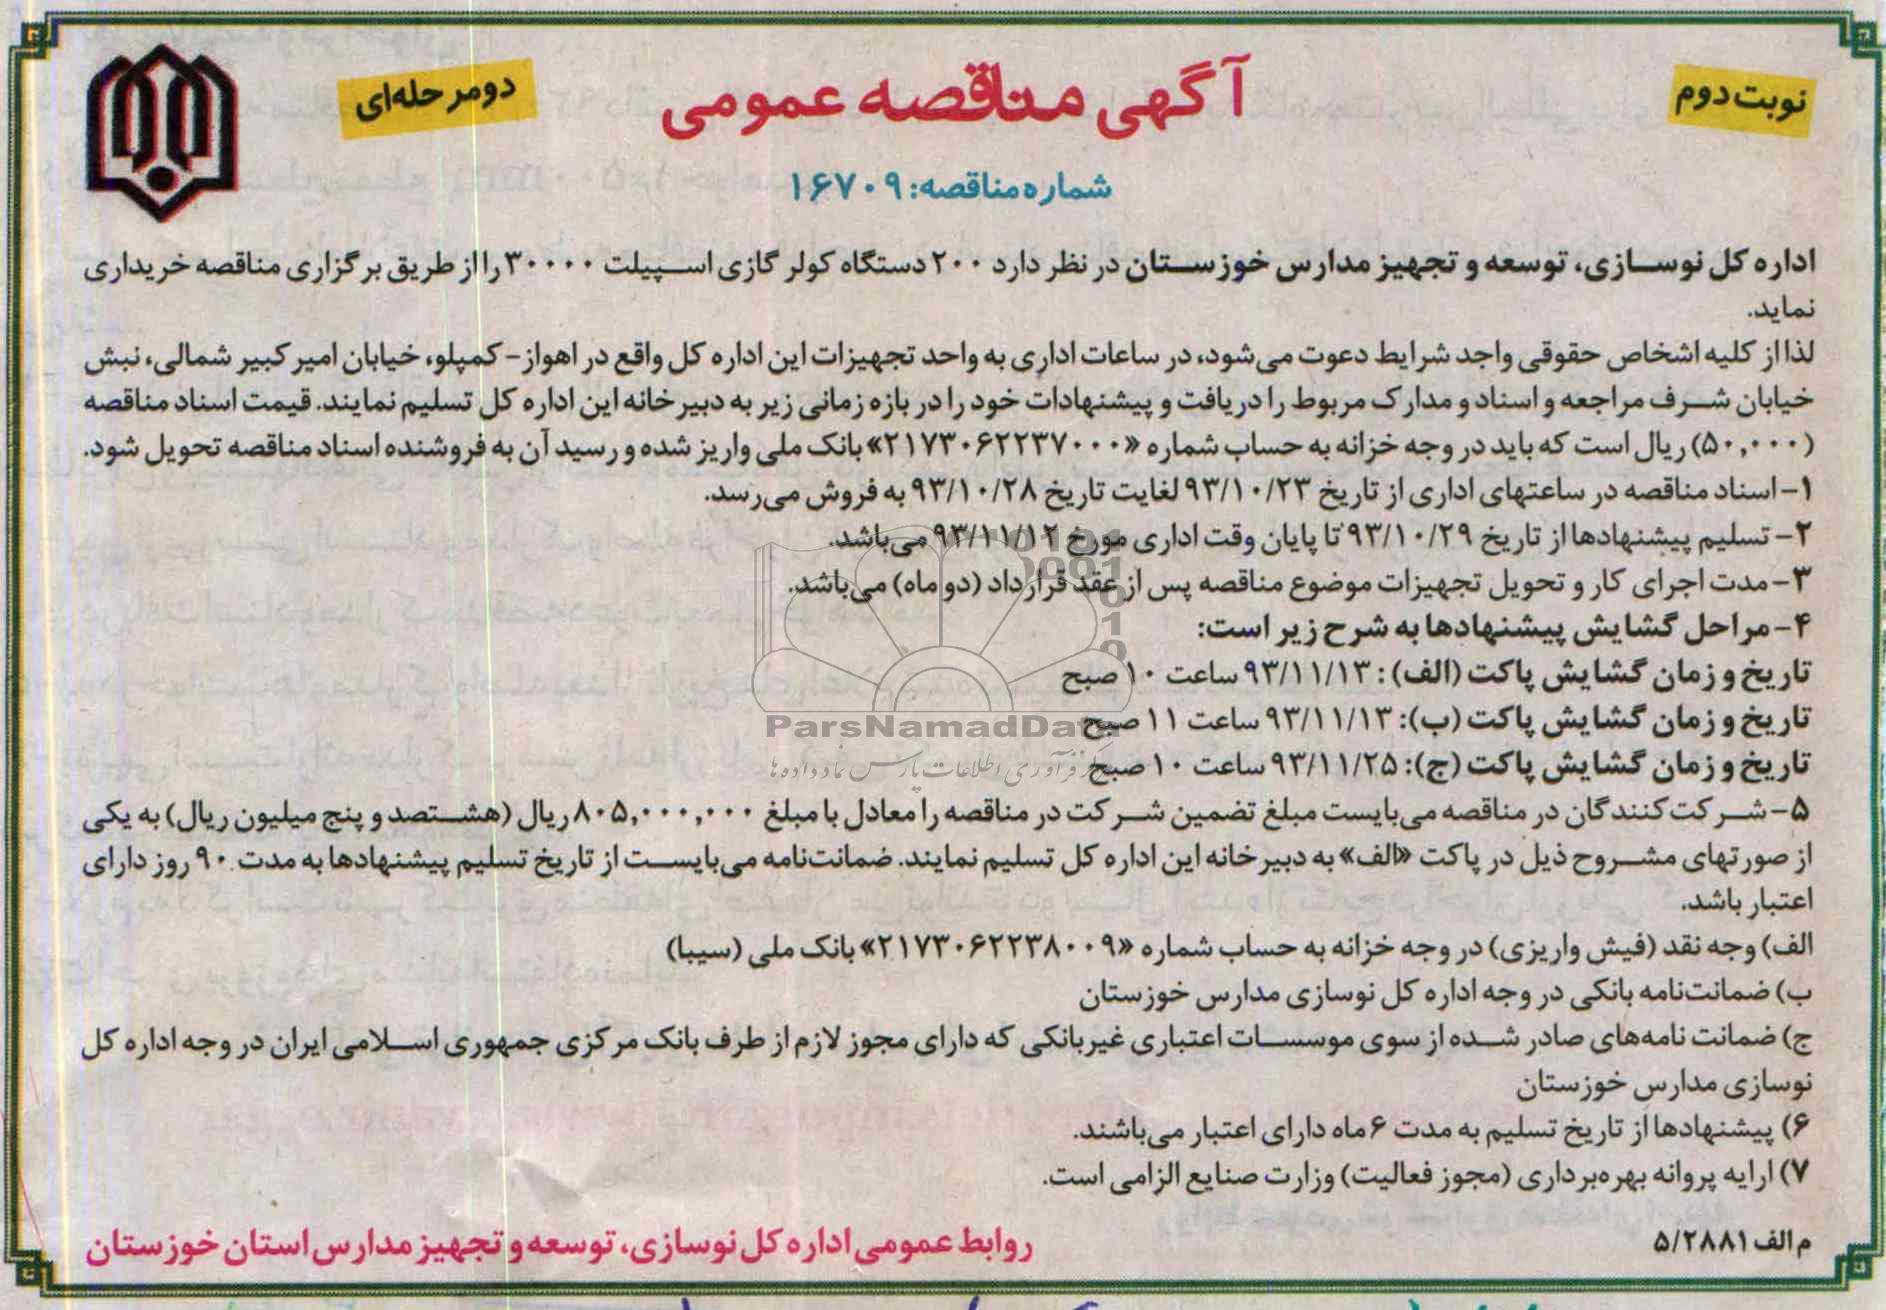 نوبت دوم
آگهی مناقصه عمومی
دومرحله‌ای
شماره مناقصه: ۱۶۷۰۹
اداره کل نوسازی، توسعه و تجهیز مدارس خوزستان در نظر دارد ۲۰۰ دستگاه کولر گازی اسپیلت ۳۰۰۰۰ را از طریق برگزاری مناقصه خریداری
نماید.
لذا از کلیه اشخاص حقوقی واجد شرایط دعوت می‌شود، در ساعات اداری به واحد تجهیزات این اداره کل واقع در اهواز- کمپلو، خیابان امیرکبیر شمالی، نبش
خیابان شرف مراجعه و اسناد و مدارک مربوط را دریافت و پیشنهادات خود را در بازه زمانی زیر به دبیرخانه این اداره کل تسلیم نمایند. قیمت اسناد مناقصه
(۵۰,۰۰۰) ریال است که باید در وجه خزانه به حساب شماره «۲۱۷۳۰۶۲۲۳۷۰۰۰» بانک ملی واریز شده و رسید آن به فروشنده اسناد مناقصه تحویل شود.
۱- اسناد مناقصه در ساعتهای اداری از تاریخ ۹۳/۱۰/۲۳ لغایت تاریخ ۹۳/۱۰/۲۸ به فروش می‌رسد.
۲- تسلیم پیشنهادها از تاریخ ۹۳/۱۰/۲۹ تا پایان وقت اداری مورخ ۹۳/۱۱/۱۲ می‌باشد.
۳- مدت اجرای کار و تحویل تجهیزات موضوع مناقصه پس از عقد قرارداد (دو ماه) می‌باشد.
۴- مراحل گشایش پیشنهادها به شرح زیر است:
تاریخ و زمان گشایش پاکت (الف): ۹۳/۱۱/۱۳ ساعت ۱۰ صبح
تاریخ و زمان گشایش پاکت (ب): ۹۳/۱۱/۱۳ ساعت ۱۱ صبح
ParsNamadData
تاریخ و زمان گشایش پاکت (ج): ۹۳/۱۱/۲۵ ساعت ۱۰ صبح
فرآوری اطلاعات پارس نماد داده‌ها
۵- شرکت‌کنندگان در مناقصه می‌بایست مبلغ تضمین شرکت در مناقصه را معادل با مبلغ ۸۰۵,۰۰۰,۰۰۰ ریال (هشتصد و پنج میلیون ریال) به یکی
از صورتهای مشروح ذیل در پاکت «الف» به دبیرخانه این اداره کل تسلیم نمایند. ضمانت‌نامه می‌بایست از تاریخ تسلیم پیشنهادها به مدت ۹۰ روز دارای
اعتبار باشد.
الف) وجه نقد (فیش واریزی) در وجه خزانه به حساب شماره «۲۱۷۳۰۶۲۲۳۸۰۰۹» بانک ملی (سیبا)
ب) ضمانت‌نامه بانکی در وجه اداره کل نوسازی مدارس خوزستان
ج) ضمانت نامه‌های صادر شده از سوی موسسات اعتباری غیربانکی که دارای مجوز لازم از طرف بانک مرکزی جمهوری اسلامی ایران در وجه اداره کل
نوسازی مدارس خوزستان
۶) پیشنهادها از تاریخ تسلیم به مدت ۶ ماه دارای اعتبار می‌باشند.
۷) ارایه پروانه بهره‌برداری (مجوز فعالیت) وزارت صنایع الزامی است.
م الف ۵/۲۸۸۱
روابط عمومی اداره کل نوسازی، توسعه و تجهیز مدارس استان خوزستان